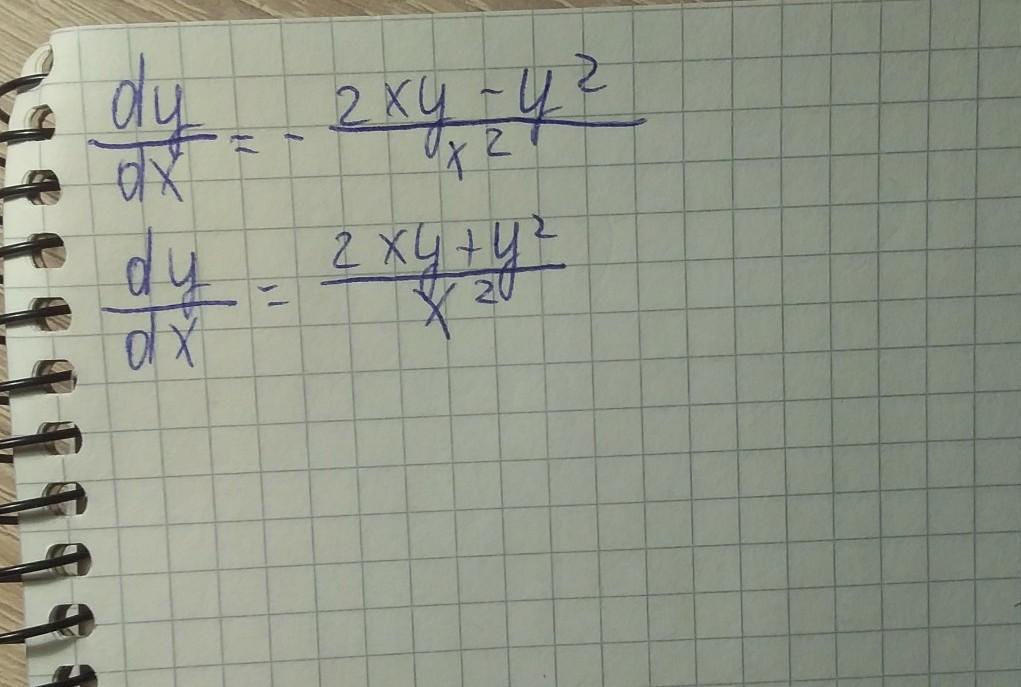 dy/dx = - (2xy - y²)/x²
dy/dx = (2xy + y²)/x²